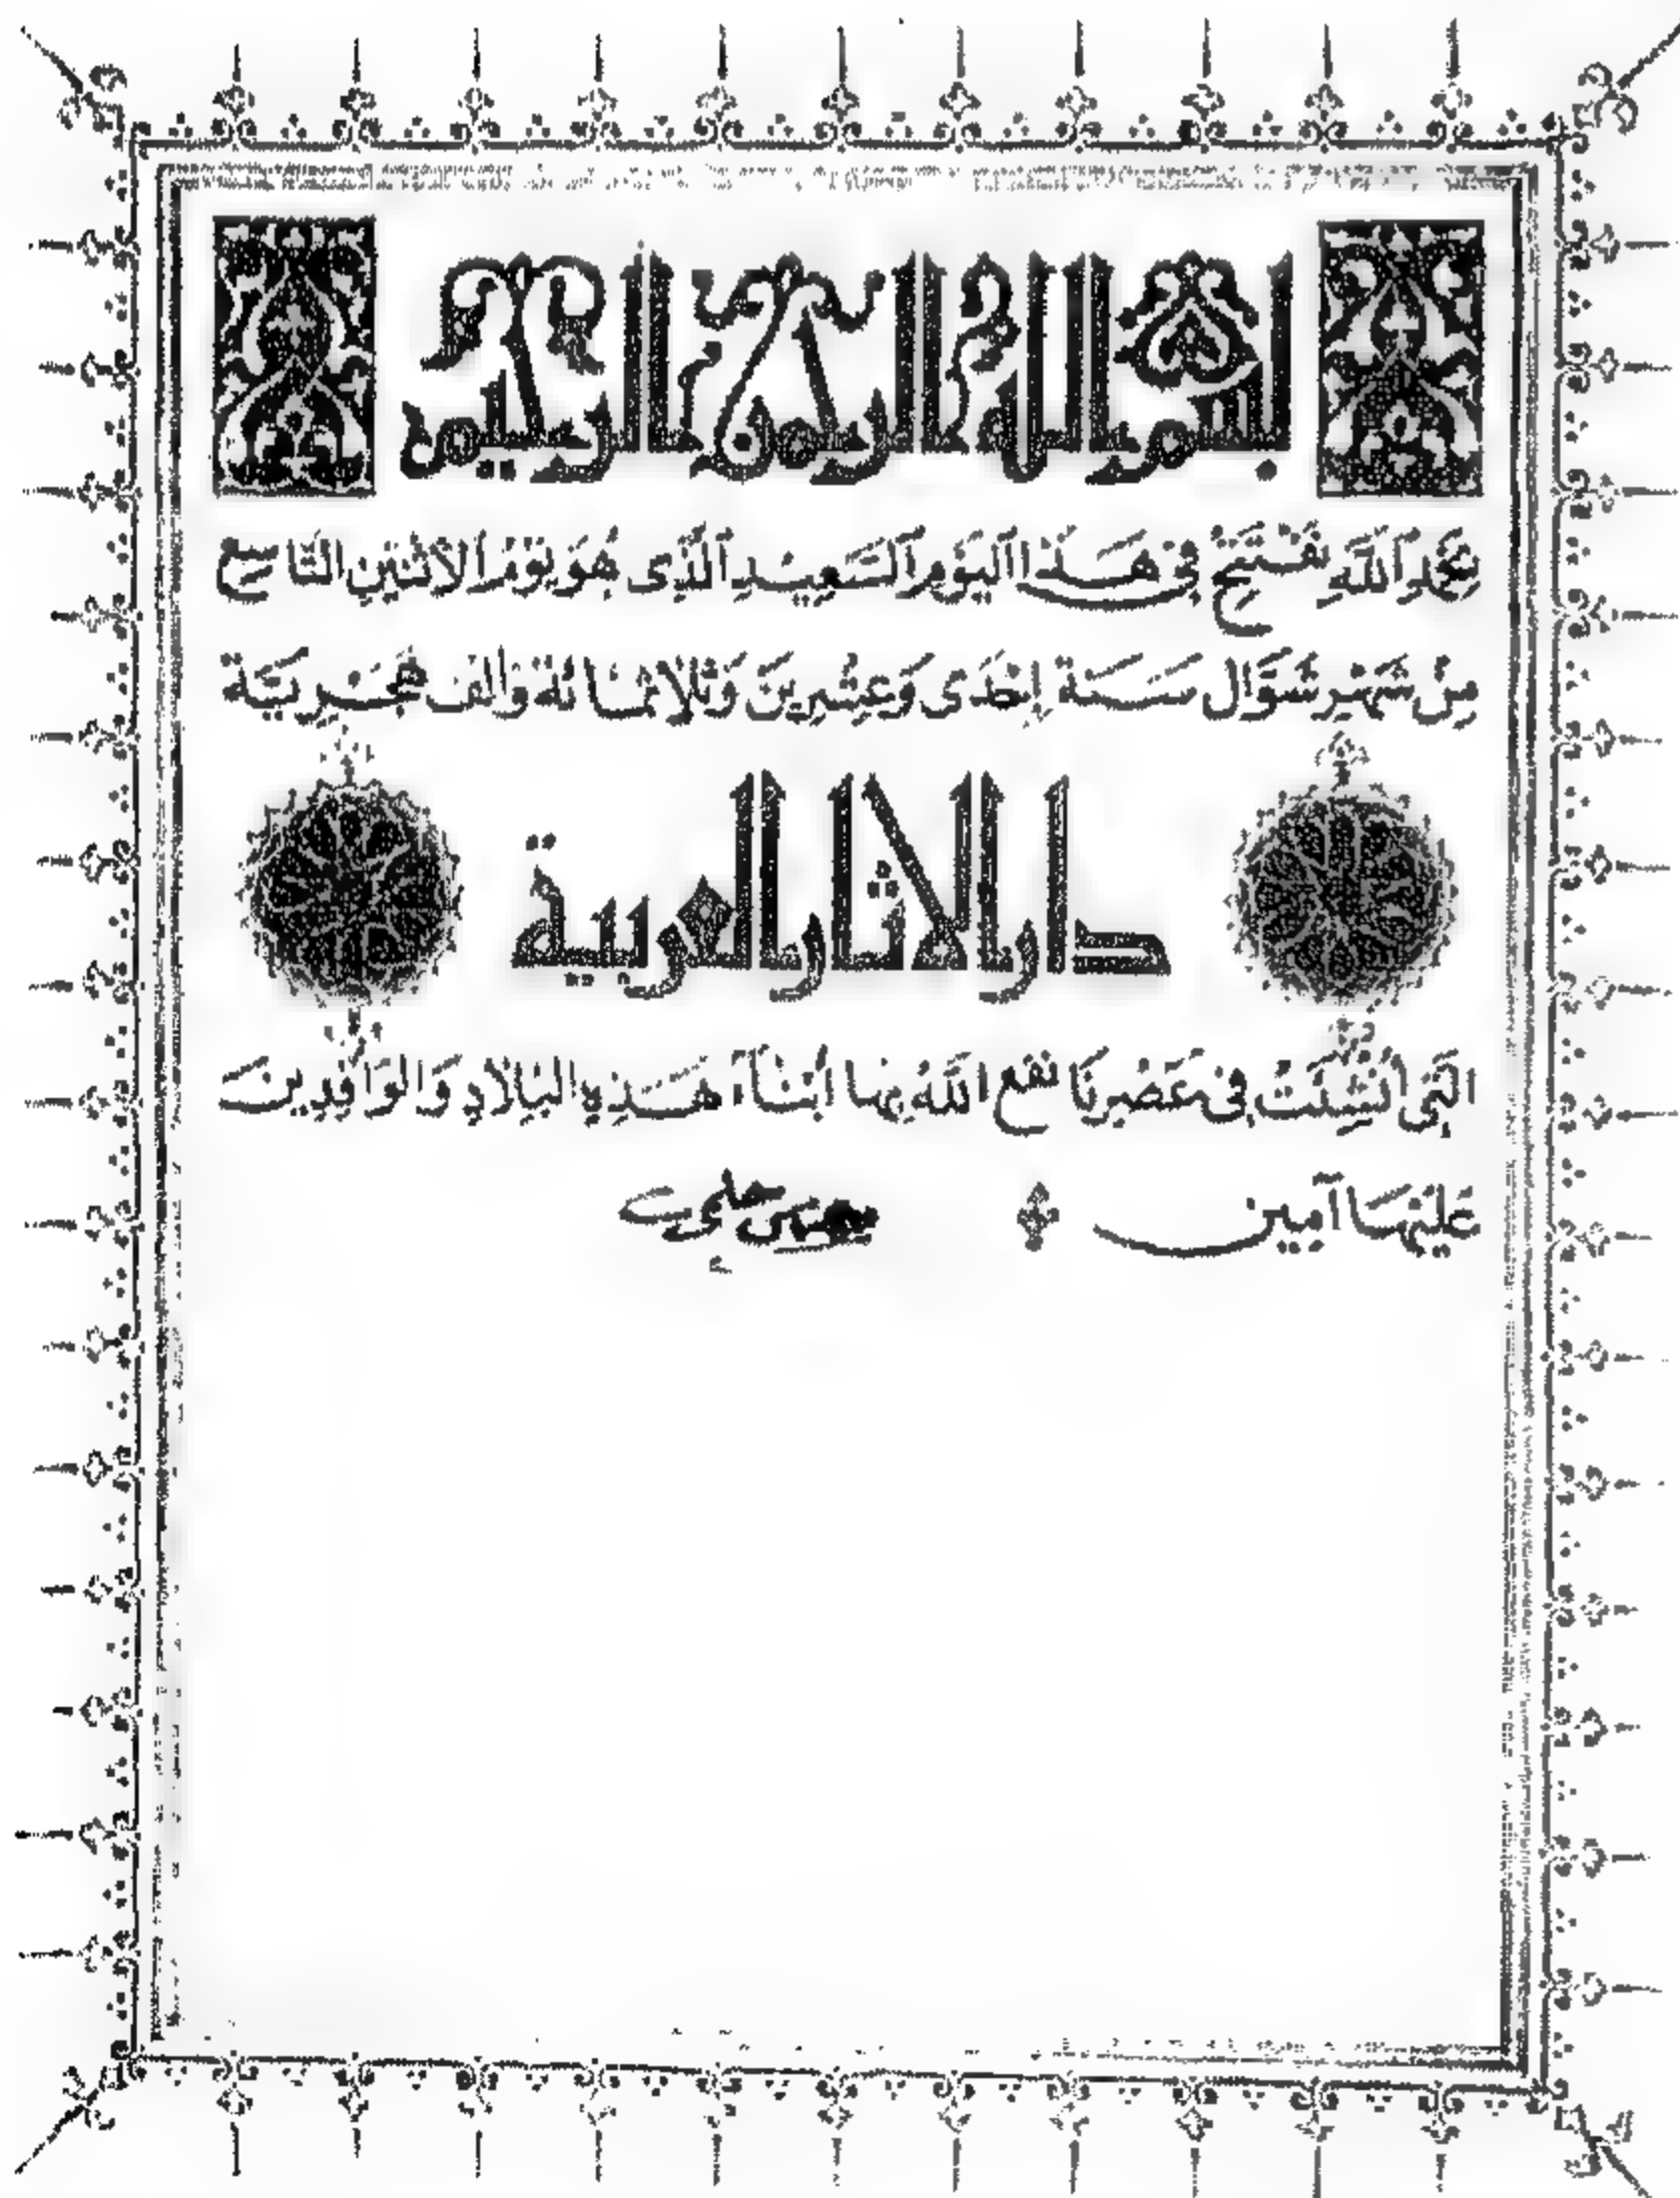 بسم الله الرحمن الرحيم
بِحَمْدِ اللهِ نَفْتَتِحُ فِى هَذَا الْيَوْمِ السَّعِيدِ الَّذِى هُوَ يَوْمُ الاثْنَيْنِ التَّاسِعِ
مِنْ شَهْرِ شَوَّال سَنَة إِحْدَى وَعِشْرِينَ وَثَلاثمَائَة وَالف هِجْرِيَّة
دار الاثار العربية
الَّتِى أُنْشِئَتْ فِى عَصْرِنَا نَفَعَ اللهُ بِهَا أَبْنَاءَ هَذِهِ الْبِلَادِ وَالْوَافِدِينَ
عَلَيْهَا آمِين
عباس حلمى